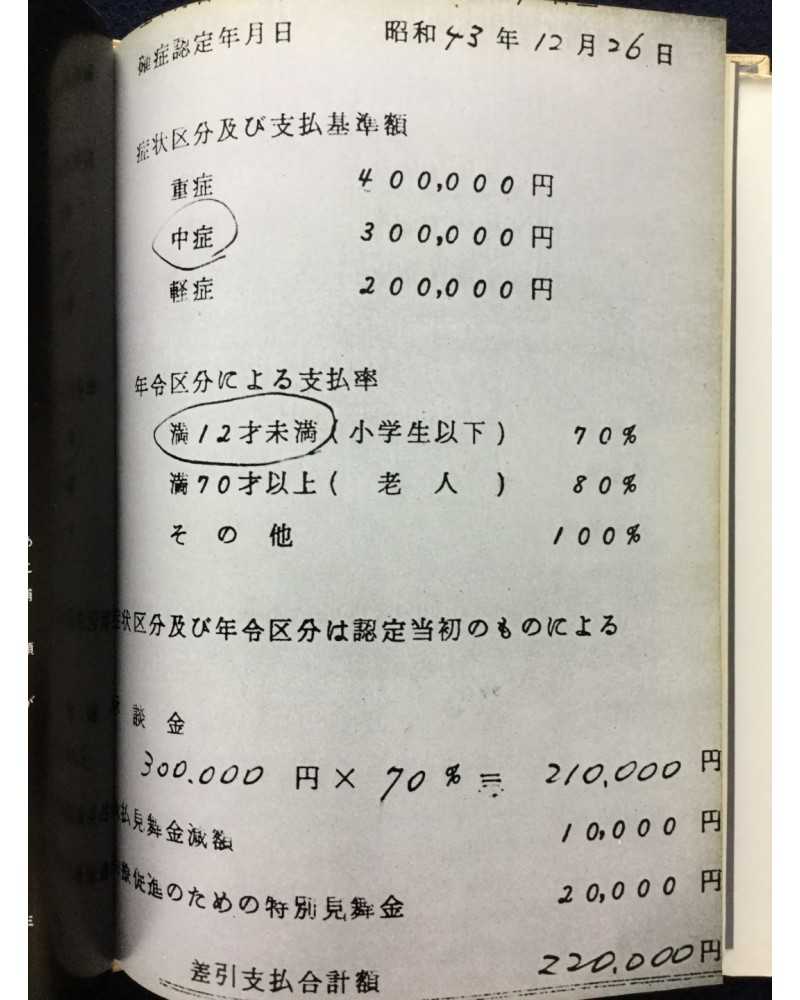 症認定年月日 昭和43年12月26日
症状区分及び支払基準額
重症 400,000円
中症 300,000円
軽症 200,000円
年令区分による支払率
満12才未満(小学生以下) 70%
満70才以上(老人) 80%
その他 100%
状区分及び年令区分は認定当初のものによる
談金
300.000円×70%＝210,000円
払見舞金減額 10,000円
促進のための特別見舞金 20,000円
差引支払合計額 220,000円